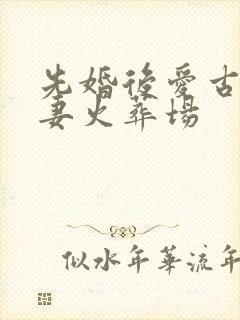 先婚後愛古
妻火葬場
似水年華流年